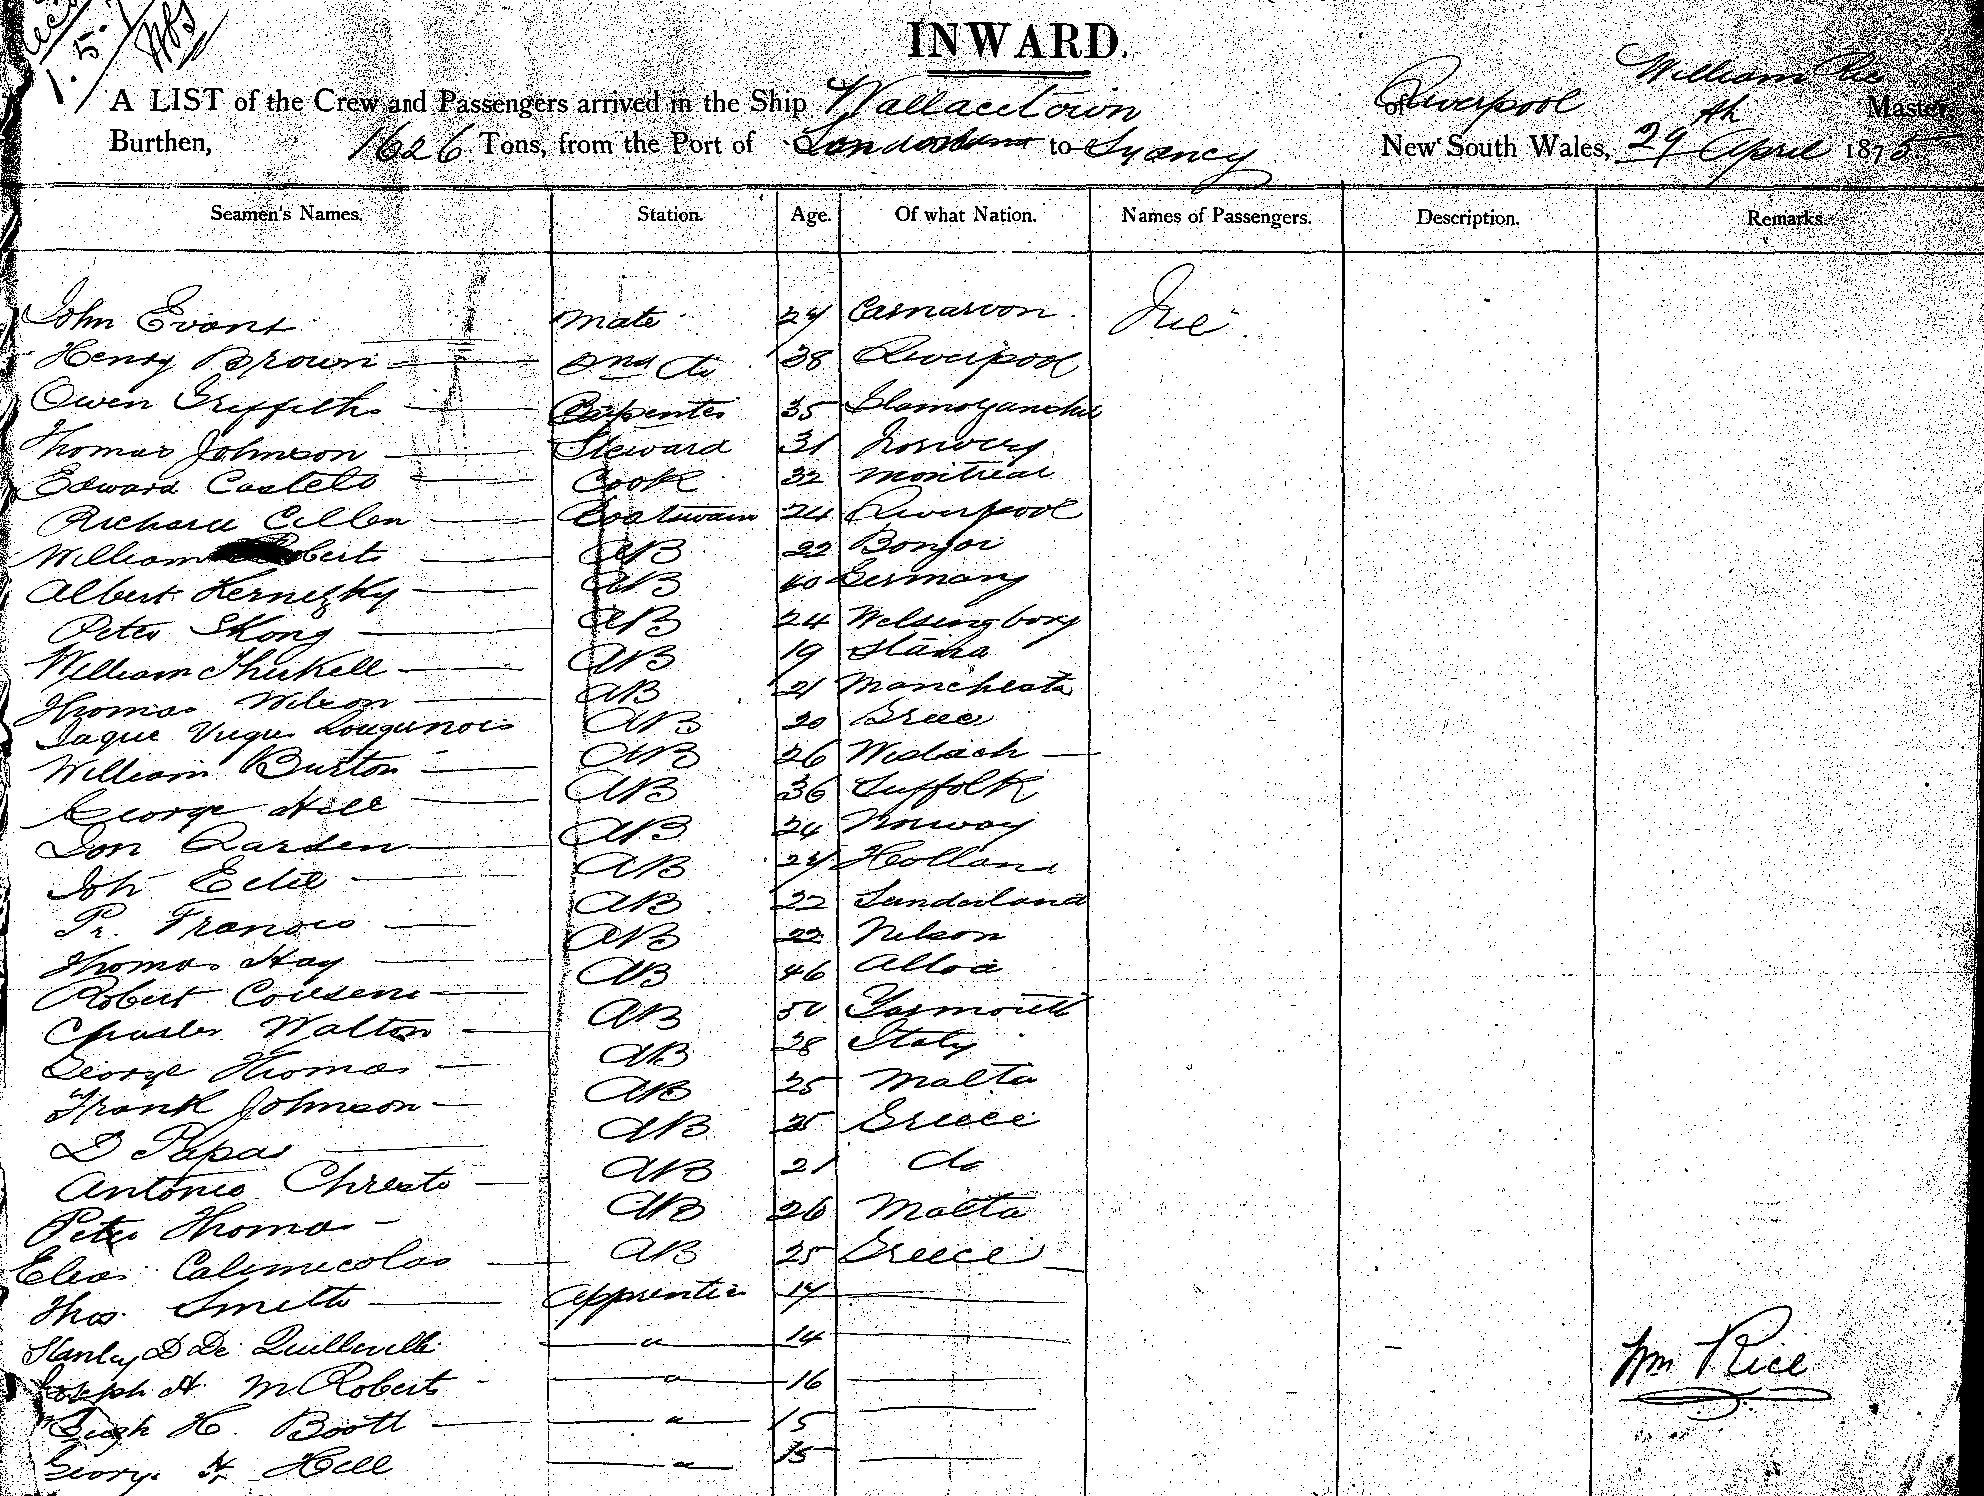 INWARD.
William Rice
A LIST of the Crew and Passengers arrived in the Ship Wallacetown of Liverpool Master,
Burthen, 1626 Tons, from the Port of London to Sydney New South Wales, 29th April 187
Seamen's Names. Station. Age. Of what Nation. Names of Passengers. Description. Remarks.
John Evans Mate 24 Carnarvon
Henry Brown 2nd do 38 Liverpool
Owen Griffiths Carpenter 35 Glamorganshire
Thomas Johnson Steward 31 Norway
Edward Castelo Cook 32 Montreal
Richard Cullen Boatswain 24 Liverpool
William Roberts AB 22
Albert Kernetzky AB 40 Germany
Peter Skong AB 24 Helsingborg
William Thirkell AB 19
Thomas Wilson AB 21 Manchester
AB 20
William Burton AB 26 Wisbach
George Hill AB 36 Suffolk
Larsen AB 24 Norway
Joh AB 24 Holland
Pr. Francis AB 22 Sunderland
Thomas Hay AB 22 Nelson
Robert Cousens AB 46 Alloa
Charles Walton AB 50 Yarmouth
George Thomas AB 28 Italy
Frank Johnson AB 25 Malta
D Papas AB 25 Greece
Antonio Christo AB 21 do
Peter Thomas AB 26 Malta
Elias Calimicolas AB 25 Greece
Thos. Smith Apprentice 14
Stanley D De Quilleville " 14
Joseph H. McRoberts " 16
Wm Rice
Hugh H. Booth " 15
George H. Hill " 15